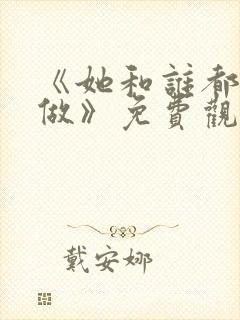 《她和誰都
做》免費觀
戴安娜